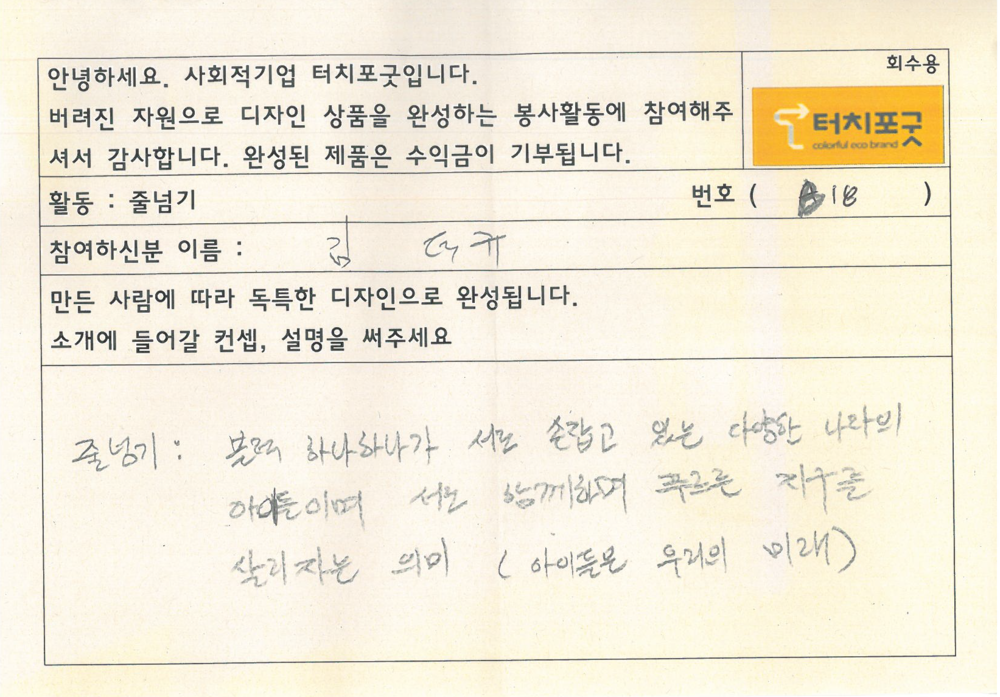 회수용
안녕하세요. 사회적기업 터치포굿입니다.
버려진 자원으로 디자인 상품을 완성하는 봉사활동에 참여해주
셔서 감사합니다. 완성된 제품은 수익금이 기부됩니다.
터치포굿
colorful eco brand
활동 : 줄넘기 번호 ( B18 )
참여하신분 이름 : 김
만든 사람에 따라 독특한 디자인으로 완성됩니다.
소개에 들어갈 컨셉, 설명을 써주세요
줄넘기 : 블럭 하나하나가 서로 손잡고 있는 다양한 나라의
아이들이며 서로 함께하며 푸르른 지구를
살리자는 의미 ( 아이들은 우리의 미래 )